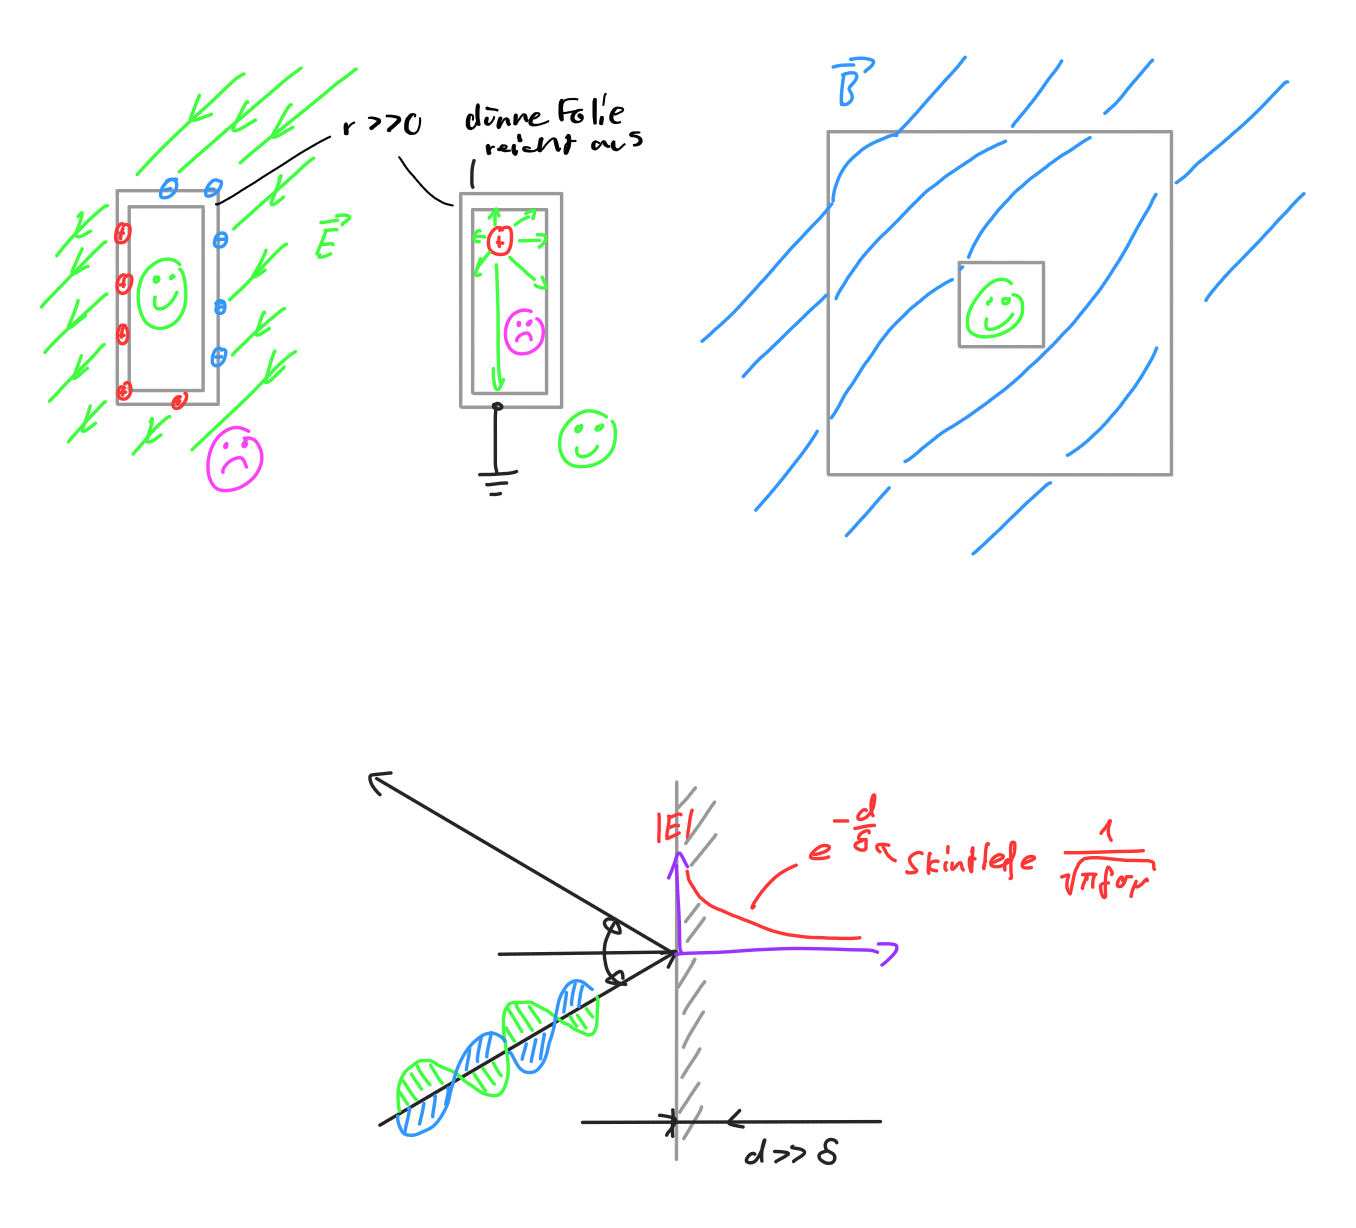 r >>0
dünne Folie
reicht aus
E
B
|E|
e^-d/δ
Skintiefe 1/√πfσμ
d >> δ